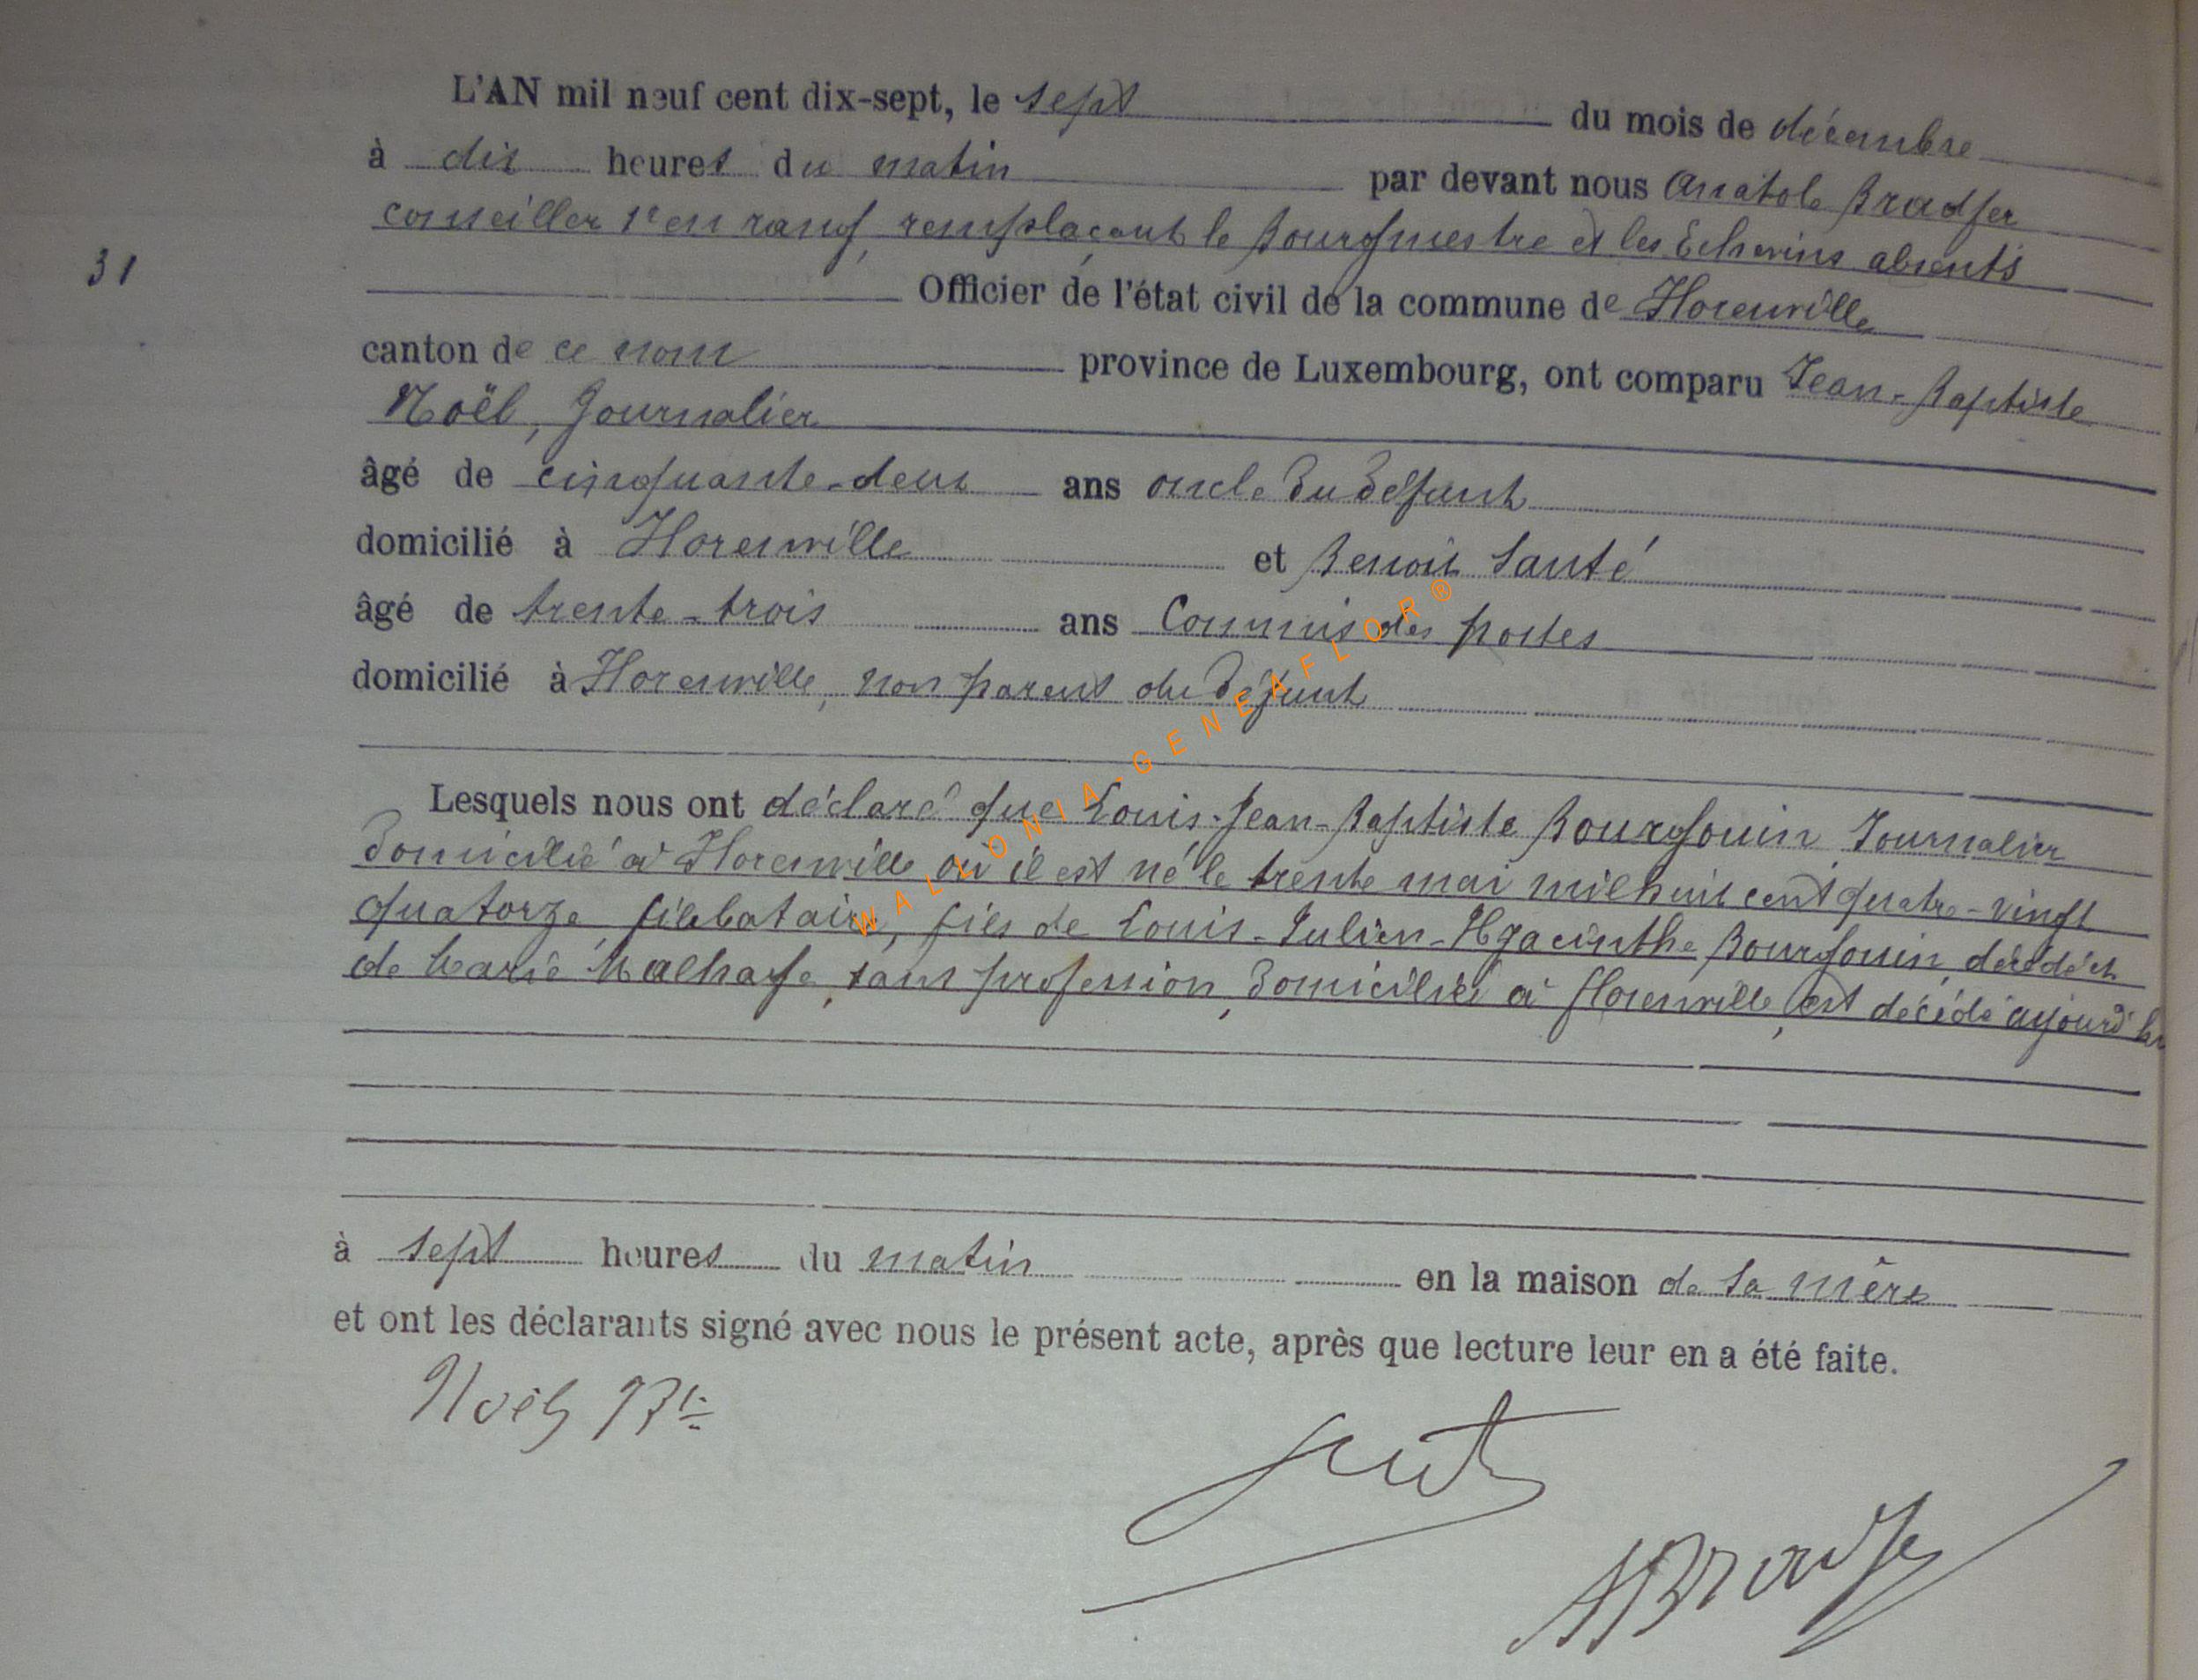 L'AN mil neuf cent dix-sept, le sept du mois de décembre
à dix heures du matin par devant nous Anatole Bradfer
conseiller 1er en rang, remplaçant le Bourgmestre et les Echevins absents
31
Officier de l'état civil de la commune de Florenville
canton de ce nom province de Luxembourg, ont comparu Jean-Baptiste
Noël, Journalier
âgé de cinquante-deux ans oncle du défunt
domicilié à Florenville et Benoit Santé
âgé de trente-trois ans Commis des postes
domicilié à Florenville, non parent du défunt
Lesquels nous ont déclaré que Louis-Jean-Baptiste Bourgouin, Journalier
domicilié à Florenville où il est né le trente mai mil huit cent quatre-vingt
quatorze, célibataire, fils de Louis-Julien-Hyacinthe Bourgouin, décédé et
de Marie, sans profession, domiciliée à Florenville, est décédé aujourd'hui
à sept heures du matin en la maison de sa mère
et ont les déclarants signé avec nous le présent acte, après que lecture leur en a été faite.
Noël Bte
ABradfer
WALLONIA-GENEAFLOR®